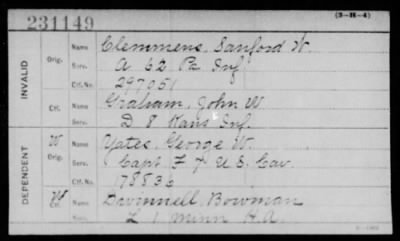 231149
(3-H-4)
INVALID
Orig. Name Clemmens, Sanford W.
Serv. A 62 Pa Inf
Ctf. No. 297051
Ctf. Name Graham, John W
Serv. D 8 Kans Inf.
DEPENDENT
W Orig. Name Yates, George W.
Serv. Capt. F 7 U S. Cav.
Ctf. No. 178836
W Ctf. Name Bowman
Serv. L 1 Minn H.A.